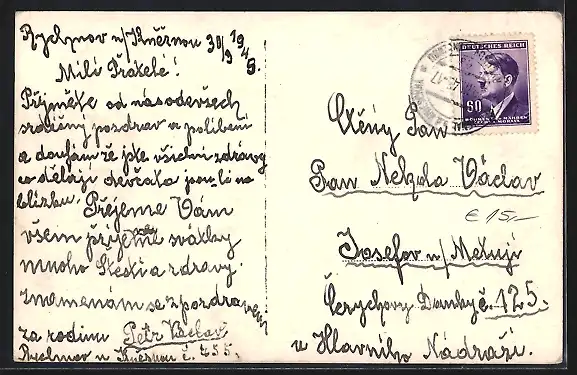 Rychnov n/Kněžnou 30/3 1945.
Milí Přátelé!
Přijměte od nás od všech
srdečný pozdrav a políbení
a doufám že jste všichni zdrávy
co dělají děvčata jsou-li na
blízku. Přejeme Vám
všem příjemné svátky
mnoho štestí a zdraví.
znamenám se z pozdravem
za rodinu Petr Václav
Rychnov n Kněžnou č. 755.
DEUTSCHES REICH
60
BÖHMEN UND MÄHREN
ČECHY A MORAVA
Ctěný Pan
Pan Václav
€ 15,-
Josefov n/Metují
č. 125.
u Hlavního Nádraží.